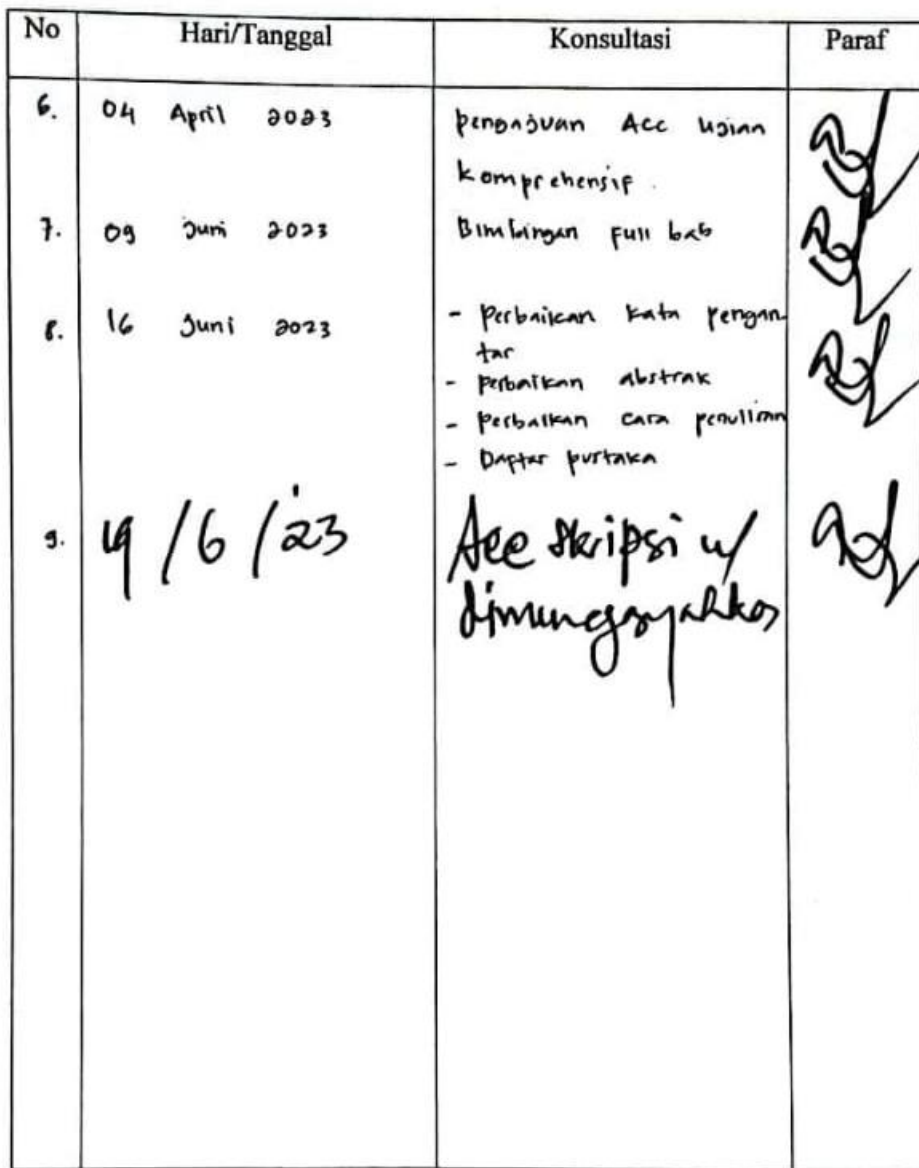 No Hari/Tanggal Konsultasi Paraf
6. 04 April 2023 pengajuan Acc ujian
komprehensif.
7. 09 Juni 2023 Bimbingan full bab
8. 16 Juni 2023 - Perbaikan kata pengan
tar
- Perbaikan abstrak
- Perbaikan cara penulisan
- Daftar pustaka
9. 19/6/'23 Acc skripsi u/
dimunaqasyahkan